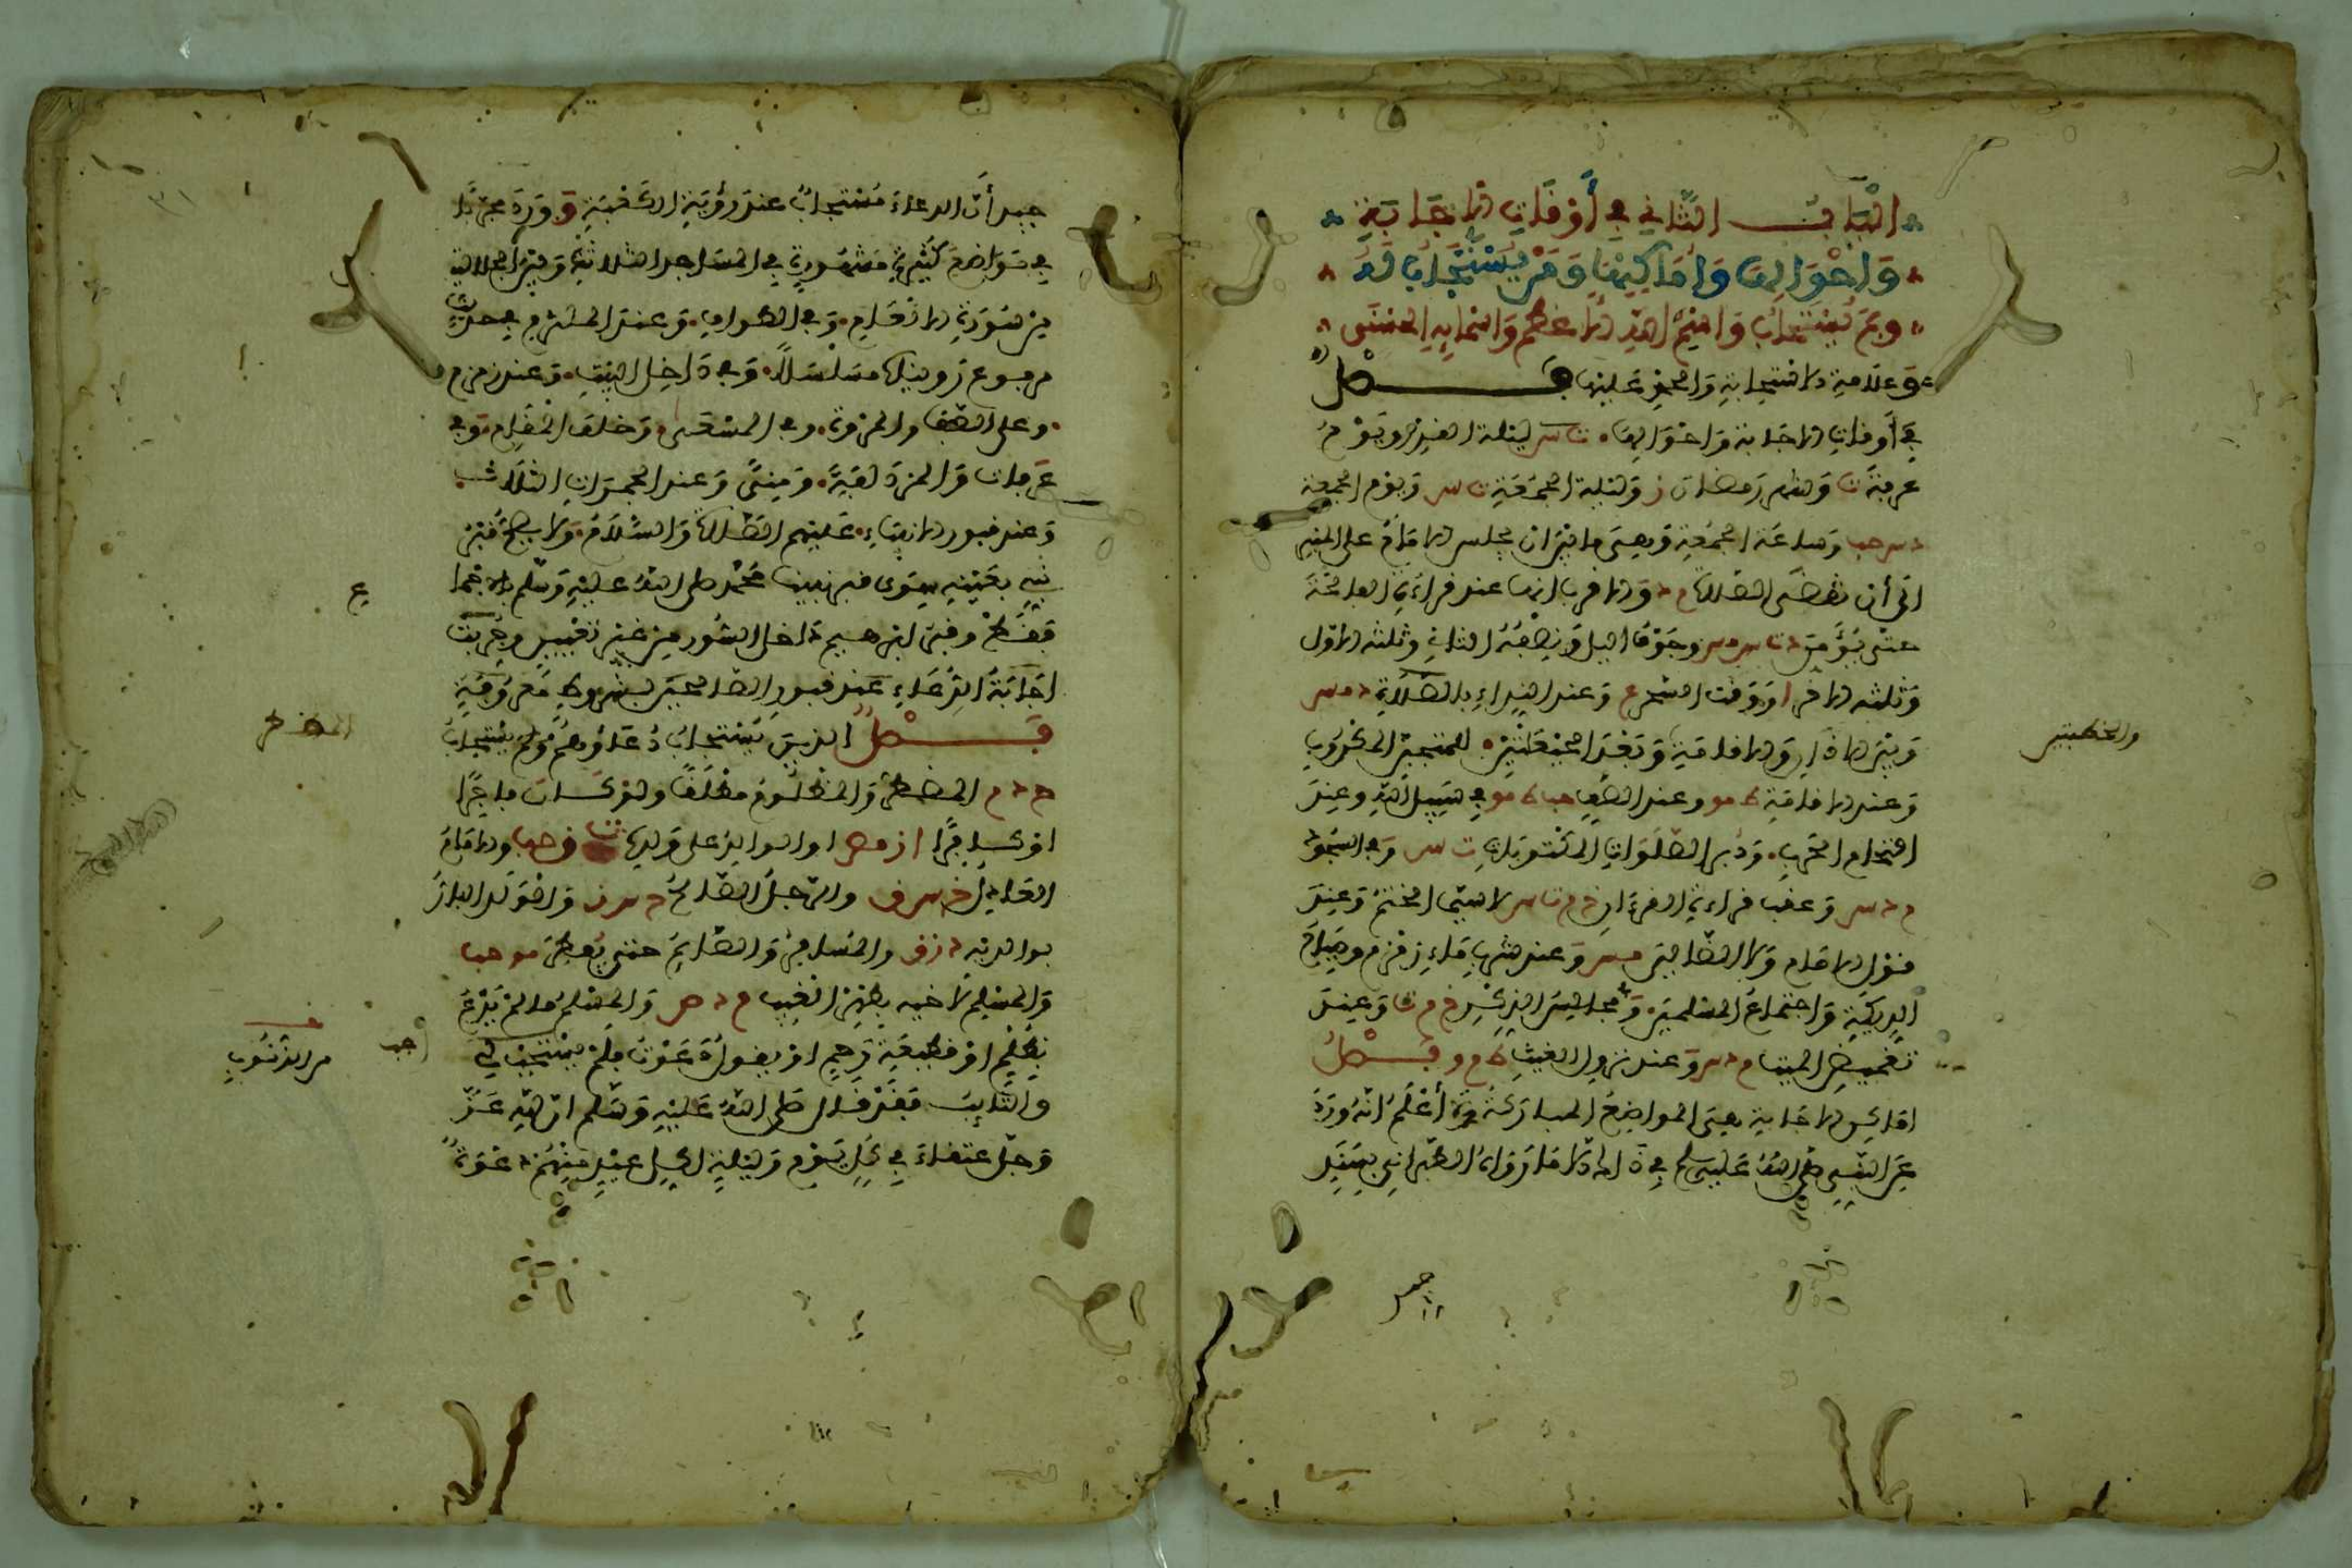 الْبَابُ الثَّانِي فِي أَوْقَاتِ الاجَابَةِ
وَأَحْوَالِهَا وَأَمَاكِنِهَا وَمَنْ يُسْتَجَابُ لَهُ
وَبِمَ يُسْتَجَابُ وَاسْمُ اللهِ الاعْظَمُ وَأَسْمَائِهِ الْحُسْنَى
وَعَلَامَةِ الاسْتِجَابَةِ وَالحَمْدِ عَلَيْهَا فَصْلٌ
فِي أَوْقَاتِ الاجَابَةِ وَأَحْوَالِهَا ت س لَيْلَة القَدْرِ وَيَوْمُ
عرفةَ ت وَشهر رَمضان ز وَلَيْلة الجُمُعَةِ ت س وَيَوْم الجمعة
د س حب وَساعَة الجُمُعَةِ وَهِيَ مَا بَيْنَ ان يجلس الامَامُ على المنبر
الَى أن تُقْضَى الصَّلاة م د وَالاقرب انها عند قراءَة الفاتحَة
حتى يُؤَمِّن وَجَوْف الليل وَنِصْفُهُ الثاني وثلثه الاوّل
وَثلثه الاخر ا وَوَقت السَّحر ع وَعند النِدَاءِ بالصَّلَاةِ د مس
وَبَيْنَ الاذَانِ وَالاقامَةِ وَبَعْدَ الحَيْعَلَتَيْنِ للمُجيب المكرُوبِ
وَعند الاقامَة ط مو وعند الصَّفِ حب ط مو فِي سَبِيلِ اللهِ وعِندَ
التحام الحَرب وَدُبر الصَّلَوَاتِ المَكْتُوبَاتِ ت س وَفي السُّجُود
م د س وَعقب قراءة القرءَانِ ت لا سِيَّمَا الختم وَعِنْدَ
قول الامَام وَلا الضَّالين وَعند شربِ مَاءِ زَمْزَم وصِيَاح
الدِيَكَةِ وَاجتماع المسْلمينَ وَمَجَالِسِ الذِّكْرِ خ م ت وَعِندَ
تَغْمِيضِ الميت م د س وَعند نزول الغيثِ فَصْلٌ
اماكن الاجابة هي المواضعُ المباركة أَعْلَمُ انهُ وَرَدَ
عَن النَّبِي صَلى اللهُ عَليه وسلم في ذَالك الَّا مَا رَوَاهُ الطبرانِي بِسَنَدٍ
والخطبتين
جيد أنَّ الدعاءَ مُسْتجابٌ عندَ رؤْيَةِ الكَعْبَةِ وَوَرَدَ مجرَّبًا
في مَوَاضِعَ كَثِيرَةٍ مَشهُورَةٍ في المسَاجد الثلاثَة وَبَيْنَ الجلالتين
مِن سُورَةِ الانعَامِ وَفِي الطوافِ وَعند الملتزم فِي حديثٍ
مرفوع رَوينَاه مسَلْسَلًا وَفي دَاخِل البَيْتِ وَعند زمزم
وعلى الصَّفَا والمَرْوَة وفي المسْعَى وَخلفَ المَقَام وَفي
عَرفات وَالمُزْدَلفَةِ وَمِنىً وَعند الجَمَرَات الثلَاث
وَعند قبور الانبيَاء عَلَيْهم الصَّلاة وَالسَّلَامُ وَلا يصحُّ قَبْرُ
نبيّ بعَيْنِه سِوَى قبر نبينا مُحَمَّد صلى اللهُ عليْهِ وَسَلم بالاجماع
فقَطْ وقَبْرُ ابرهيم داخل السُّور مِنْ غَيْرِ تَعْيِينٍ وجُرّبَت
اجَابَةُ الدُّعَاءِ عِنْدَ قُبور الصَّالحينَ بشُروطٍ مَعْرُوفَةٍ
فَصْلٌ الذِينَ يُسْتَجَابُ دُعَاؤُهُمْ وبم يُسْتَجَابُ
خ م د المضطر وَالمَظْلُومُ مطلقًا ولوْ كَانَ فاجِرًا
اوْ كافرًا ا ز مص اوالوالِد على وَلَدِه والامَامُ
العَادِل والرَّجلُ الصَّالحُ وَالوَلد البارُّ
بوالديه والمُسَافِر وَالصَّائِم حتى يُفْطر مو حب
وَالمسْلِم لأخيه بِظَهْرِ الغَيْبِ م د مص وَالمسْلمُ مَا لَمْ يَدْعُ
بِظُلْمٍ اوْ قَطِيعَةِ رَحِمٍ اوْ يقولُ دَعَوْتُ فَلَمْ يُسْتَجَبْ لِي
والتَّائِبَ فَقَدْ قَالَ صَلى اللهُ عَلَيْهِ وَسَلم انّ للهِ عَزَّ
وَجَلَّ عتقاءَ فِي كُلِّ يَوْمٍ وَلَيْلَةٍ لكُلِّ عَبْدٍ مِنْهُمْ دَعْوَةٌ
ع
المضطر
من الذُّنُوبِ